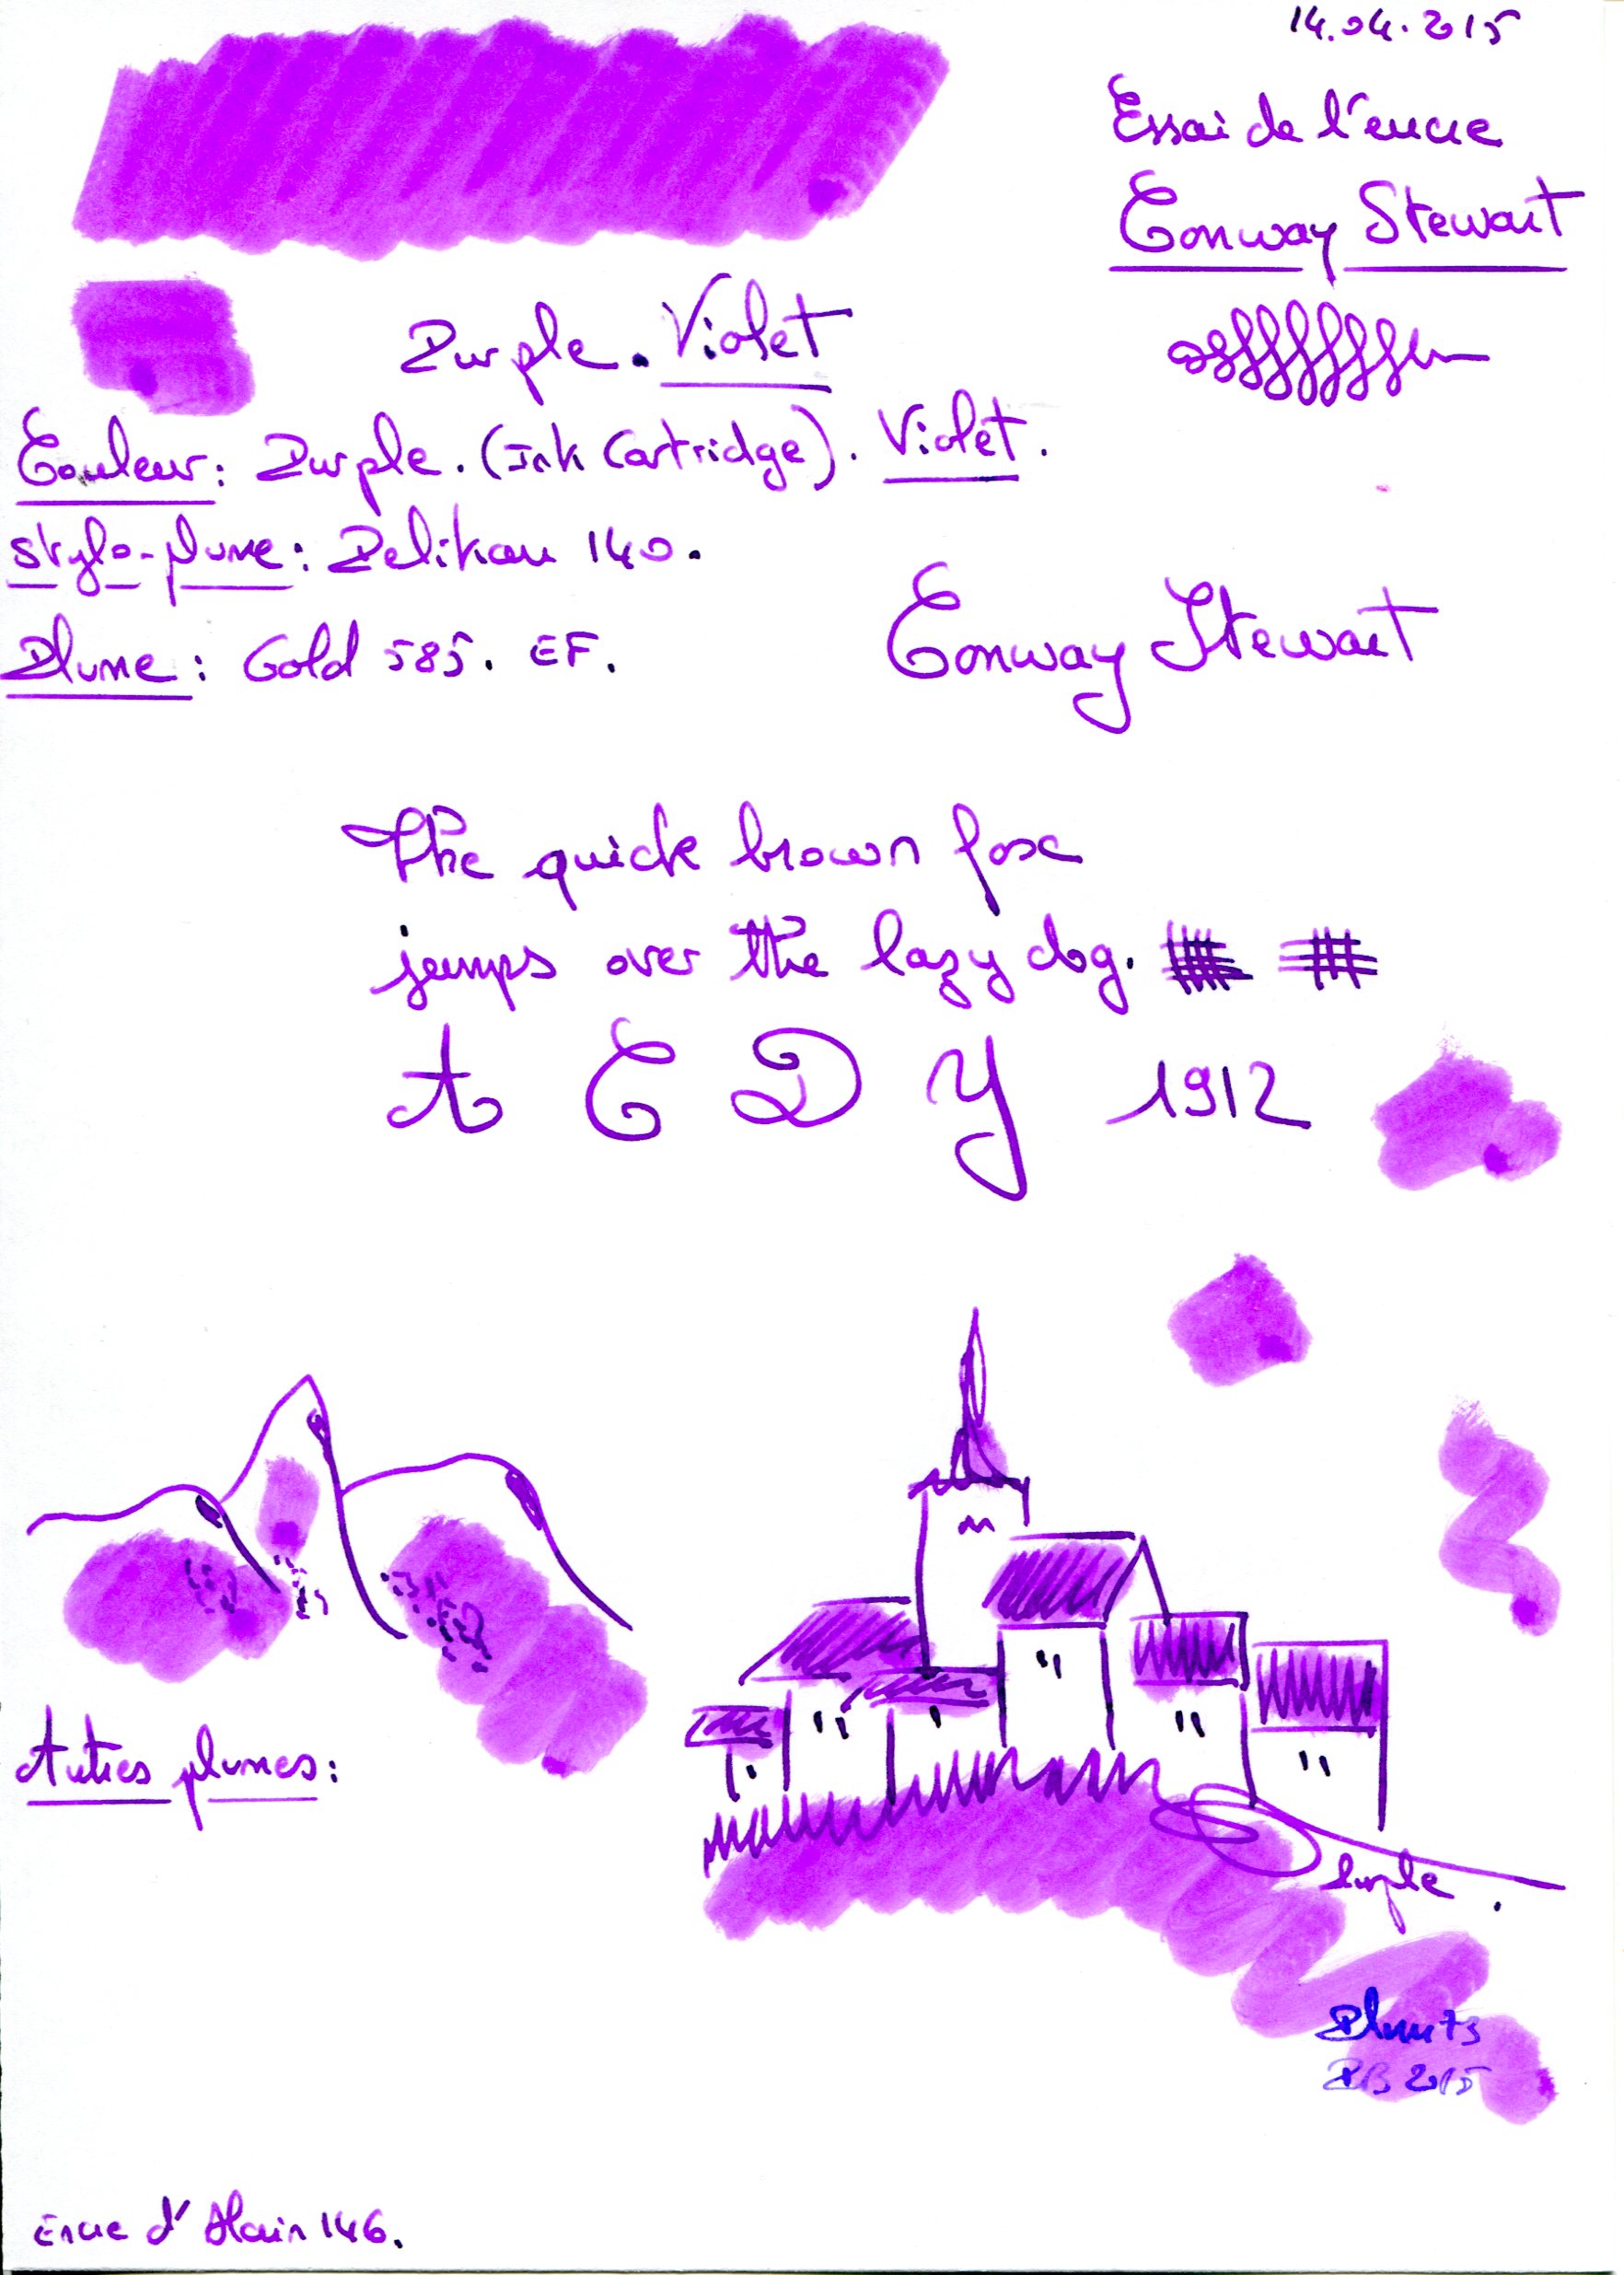 14.04.2015
Essai de l'encre
Conway Stewart
Purple. Violet
Couleur: Purple. (Ink Cartridge). Violet.
Stylo-plume: Pelikan 140.
Plume: Gold 585. EF.
Conway Stewart
The quick brown fox
jumps over the lazy dog.
A C D Y 1912
Autres plumes:
Purple.
PB 2015
Encre d'Alain 146.